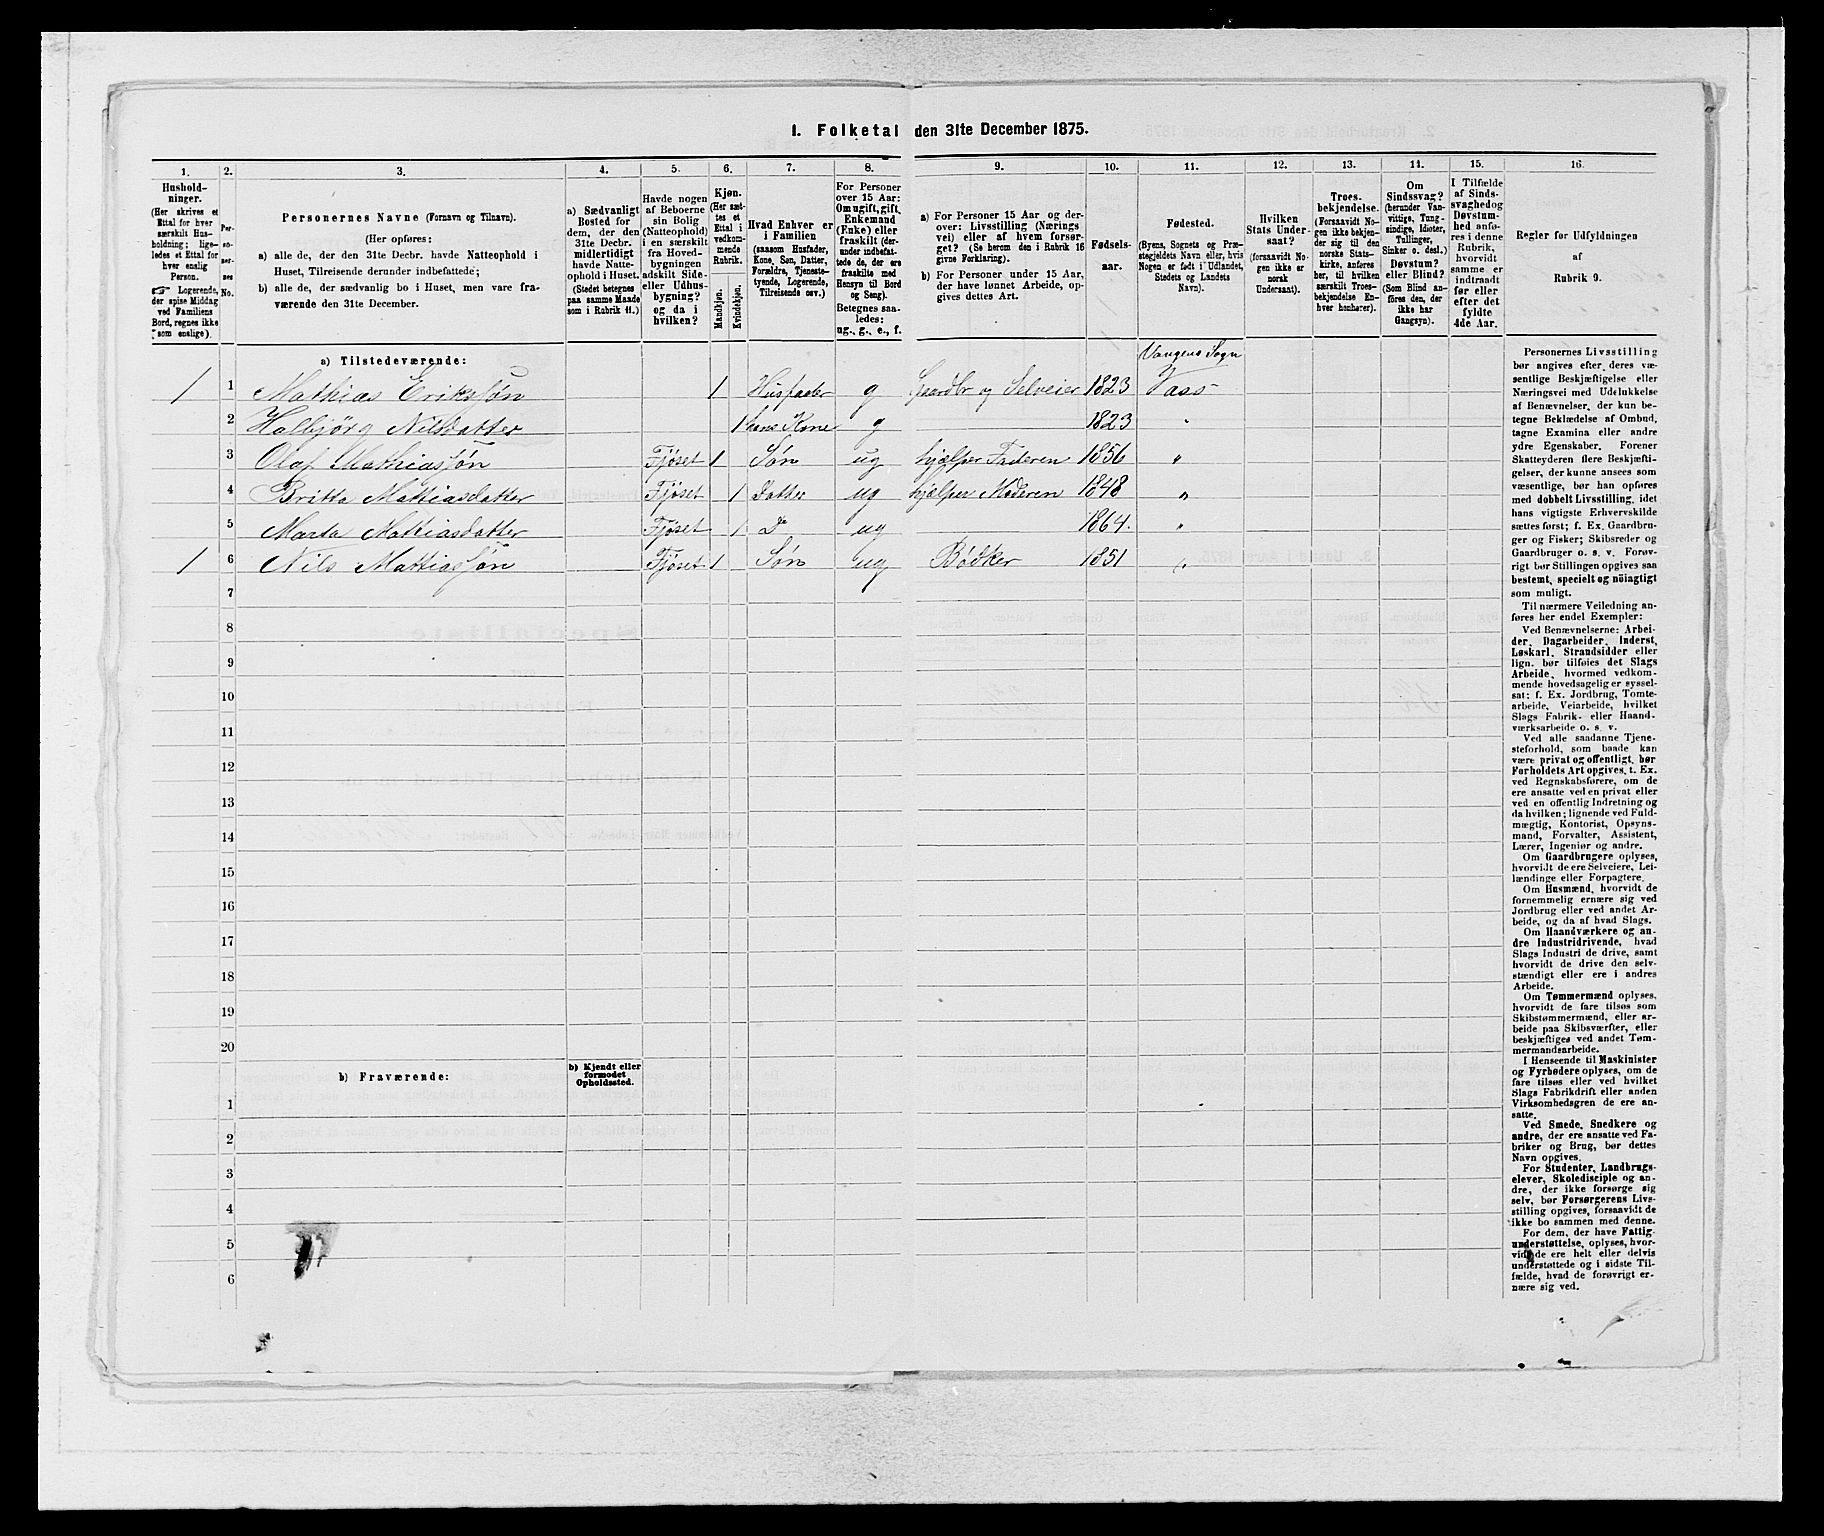 1. Folketal den 31te December 1875.
1. 2. 3. 4. 5. 6. 7. 8. 9. 10. 11. 12. 13. 14. 15. 16.
Hushold-
ninger.
(Her skrives et
Ettal for hver
særskilt Hus-
holdning; lige-
ledes et Ettal for
hver enslig
Person.
☞ Logerende,
der spise Middag
ved Familiens
Bord, regnes ikke
som enslige).
Per-
so-
ner-
nes
No.
Personernes Navne (Fornavn og Tilnavn).
(Her opføres:
a) alle de, der den 31te Decbr. havde Natteophold i
Huset, Tilreisende derunder indbefattede;
b) alle de, der sædvanlig bo i Huset, men vare fra-
værende den 31te December.
a) Sædvanligt
Bosted for
dem, der den
31te Decbr.
midlertidigt
havde Natte-
ophold i Huset.
(Stedet betegnes
paa samme Maade
som i Rubrik 11.)
Havde nogen
af Beboerne
sin Bolig
(Natteophold)
i en særskilt
fra Hoved-
bygningen
adskilt Side-
eller Udhus-
bygning?
og da i
hvilken?
Kjøn.
(Her sæt-
tes et
Ettal i
vedkom-
mende
Rubrik.
Mandkjøn.
Kvindekjøn.
Hvad Enhver er
i Familien
(saasom Husfader,
Kone, Søn, Datter,
Forældre, Tjeneste-
tyende, Logerende,
Tilreisende osv.)
For Personer
over 15 Aar:
Om ugift, gift,
Enkemand
(Enke) eller
fraskilt (der-
under indbefat-
tede de, der ere
fraskilte med
Hensyn til Bord
og Seng).
Betegnes saa-
ledes:
ug., g., e., f.
a) For Personer 15 Aar og der-
over: Livsstilling (Nærings
vei) eller af hvem forsør-
get? (Se herom den i Rubrik 16
givne Forklaring).
b) For Personer under 15 Aar,
der have lønnet Arbeide, op-
gives dettes Art.
Fødsels-
aar.
Fødested.
(Byens, Sognets og Præ-
stegjeldets Navn eller, hvis
Nogen er født i Udlandet,
Stedets og Landets
Navn).
Hvilken
Stats Under-
saat?
(forsaavidt No-
gen ikke er
norsk
Undersaat).
Troes-
bekjendelse.
(Forsaavidt No-
gen ikke bekjen-
der sig til den
norske Stats-
kirke, anføres
her, til hvilken
særskilt Troes-
bekjendelse En-
hver henhører).
Om
Sindssvag?
(herunder Van-
vittige, Tung-
sindige, Idioter,
Tullinger,
Sinker o. desl.)
Døvstum?
eller Blind?
(Som Blind an-
føres den, der
ikke har
Gangsyn).
I Tilfælde
af Sinds-
svaghed og
Døvstum-
hed anfø-
res i denne
Rubrik,
hvorvidt
samme er
indtraadt
før eller
efter det
fyldte
4de Aar.
Regler for Udfyldningen
af
Rubrik 9.
a) Tilstedeværende:
Vangens Sogn
1 1 Mathias Eriksøn 1 Husfader g Gaardbr og Selveier 1823 Vass
2 Halbjörg Nilsdatter 1 hans Kone g 1823 "
3 Olaf Mathiassøn Fjöset 1 Søn ug hjælper Faderen 1856 "
4 Britta Mattiasdatter Fjöset 1 Datter ug hjælper Moderen 1848 "
5 Marta Mattiasdatter Fjöset 1 Do ug 1864. "
1 6 Nils Mattiassøn Fjöset 1 Søn ug Bödker 1851 "
7
8
9
10
11
12
13
14
15
16
17
18
19
20
b) Fraværende:
b) Kjendt eller
formodet
Opholdssted.
1
2
3
4
5
6
Personernes Livsstilling
bør angives efter deres væ-
sentlige Beskjæftigelse eller
Næringsvei med Udelukkelse
af Benævnelser, der kun be-
tegne Beklædelse af Ombud,
tagne Examina eller andre
ydre Egenskaber. Forener
Skatteyderen flere Beskjæfti-
gelser, der kunne ansees som
væsentlige, bør han opføres
med dobbelt Livsstilling, idet
hans vigtigste Erhvervskilde
sættes først; f. Ex. Gaardbru-
ger og Fisker; Skibsreder og
Gaardbruger o. s. v. Forøv-
rigt bør Stillingen opgives saa
bestemt, specielt og nöiagtigt
som muligt.
Til nærmere Veiledning an-
føres her endel Exempler:
Ved Benævnelserne: Arbei-
der, Dagarbeider, Inderst,
Løskarl, Strandsidder eller
lign. bør tilføies det Slags
Arbeide, hvormed vedkom-
mende hovedsagelig er syssel-
sat; f. Ex. Jordbrug, Tomte-
arbeide, Veiarbeide, hvilket
Slags Fabrik- eller Haand-
værksarbeide o. s. v.
Ved alle saadanne Tjene-
steforhold, som baade kan
være privat og offentligt, bør
Forholdets Art opgives, t. Ex.
ved Regnskabsførere, om de
ere ansatte ved en privat eller
ved en offentlig Indretning og
da hvilken; lignende ved Fuld-
mægtig, Kontorist, Opsyns-
mand, Forvalter, Assistent,
Lærer, Ingeniør og andre.
Om Gaardbrugere oplyses,
hvorvidt de ere Selveiere, Lei-
lændinge eller Forpagtere.
Om Husmænd, hvorvidt de
fornemmelig ernære sig ved
Jordbrug eller ved andet Ar-
beide, og da af hvad Slags.
Om Haandværkere og an-
dre Industridrivende, hvad
Slags Industri de drive, samt
hvorvidt de drive den selv-
stændigt eller ere i andres
Arbeide.
Om Tømmermænd oplyses,
hvorvidt de fare tilsøs som
Skibstømmermænd, eller ar-
beide paa Skibsværfter, eller
beskjæftiges ved andet Tøm-
mermandsarbeide.
I Henseende til Maskinister
og Fyrbødere oplyses, om de
fare tilsøs eller ved hvilket
Slags Fabrikdrift eller anden
Virksomhedsgren de ere an-
satte.
Ved Smede, Snedkere og
andre, der ere ansatte ved Fa-
briker og Brug, bør dettes
Navn opgives.
For Studenter, Landbrugs-
elever, Skoledisciple og an-
dre, der ikke forsørge sig
selv, bør Forsørgerens Livs-
stilling opgives, forsaavidt de
ikke bo sammen med denne.
For dem, der have Fattig-
understøttelse, oplyses, hvor-
vidt de ere helt eller delvis
understøttede og i sidste Til-
fælde, hvad de forøvrigt er-
nære sig ved.